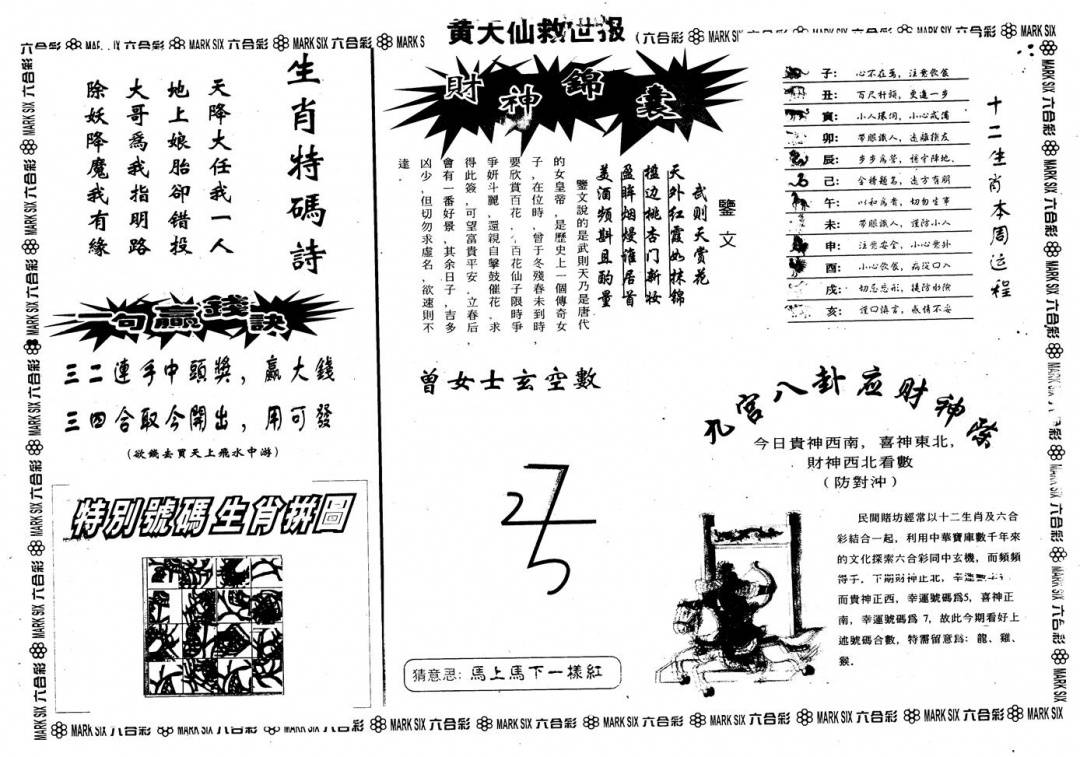 黄大仙救世报
(六合彩 MARK SIX 六合彩 MARK SIX 六合彩 MARK SIX
生肖特碼詩
天降大任我一人
地上娘胎卻錯投
大哥爲我指明路
除妖降魔我有緣
一句贏錢訣
三二連手中頭獎，贏大錢
三四合取今開出，用可發
(欲錢去買天上飛水中游)
特別號碼生肖拼圖
財神錦囊
鑒文
武則天賞花
天外紅霞如抹錦
檻边桃杏门新妆
盈眸烟熳谁居首
美酒頻斟且酌量
鑒文說的是武則天乃是唐代
的女皇帝，是歷史上一個傳奇女
子，在位時，曾于冬殘春未到時，
要欣賞百花，百花仙子限時爭
爭妍斗麗，還親自擊鼓催花，求
得此簽，可望富貴平安，立春后
會有一番好景，其余日子，吉多
凶少，但切勿求虛名，欲速則不
達．
曾女士玄空數
猜意思: 馬上馬下一樣紅
十二生肖本周运程
子: 心不在焉，注意飲食
丑: 百尺杆頭，更進一步
寅: 小人環伺，小心戒備
卯: 帶眼識人，遠離損友
辰: 步步爲營，謹守陣地．
己: 金榜題名，遠方有朋
午: 以和爲貴，切勿生事
未: 帶眼識人，謹防小人
申: 注意安全，小心意外
酉: 小心飲食，病從口入
戌: 切忌忘形，提防水險
亥: 謹口慎言，感情不妥
九宫八卦应财神
今日貴神西南，喜神東北，
財神西北看數
(防對沖)
民間賭坊經常以十二生肖及六合
彩結合一起，利用中華寶庫數千年來
的文化探索六合彩同中玄機，而頻頻
得手，下期財神正北，幸運
而貴神正西，幸運號碼爲5，喜神正
南，幸運號碼爲 7，故此今期看好上
述號碼合數，特需留意爲：龍、雞、
猴．
MARK SIX 六合彩 MARK SIX 六合彩 MARK SIX 六合彩 MARK SIX 六合彩 MARK SIX